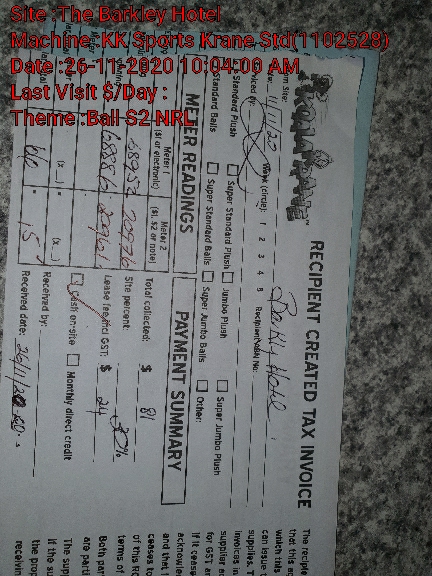 Site :The Barkley Hotel
Machine: KK Sports Krane Std(1102528)
Date :26-11-2020 10:04:00 AM
Last Visit $/Day :
Theme :Ball S2 NRL
RECIPIENT CREATED TAX INVOICE
Site:
Barkly Hotel
(circle): 1 2 3 4 5 Recipient ABN No:
Standard Plush Super Standard Plush Jumbo Plush Super Jumbo Plush
Standard Balls Super Standard Balls Super Jumbo Balls Other:
METER READINGS
PAYMENT SUMMARY
Meter
($1 or electronic)
Meter 2
($1, $2 or note)
20976
20961
15
Total collected: $ 81
Site percent: 30%
Lease fee incl GST: $ 24
Cash on-site Monthly direct credit
Received by:
Received date: 26/11/20
The recipie
that this
which this
can issue
supplies. T
invoices in
supplier a
for GST ar
if it cease
acknowle
and that i
ceases to
of this RC
terms of
Both part
are parti
The supp
if the su
the prop
receivin